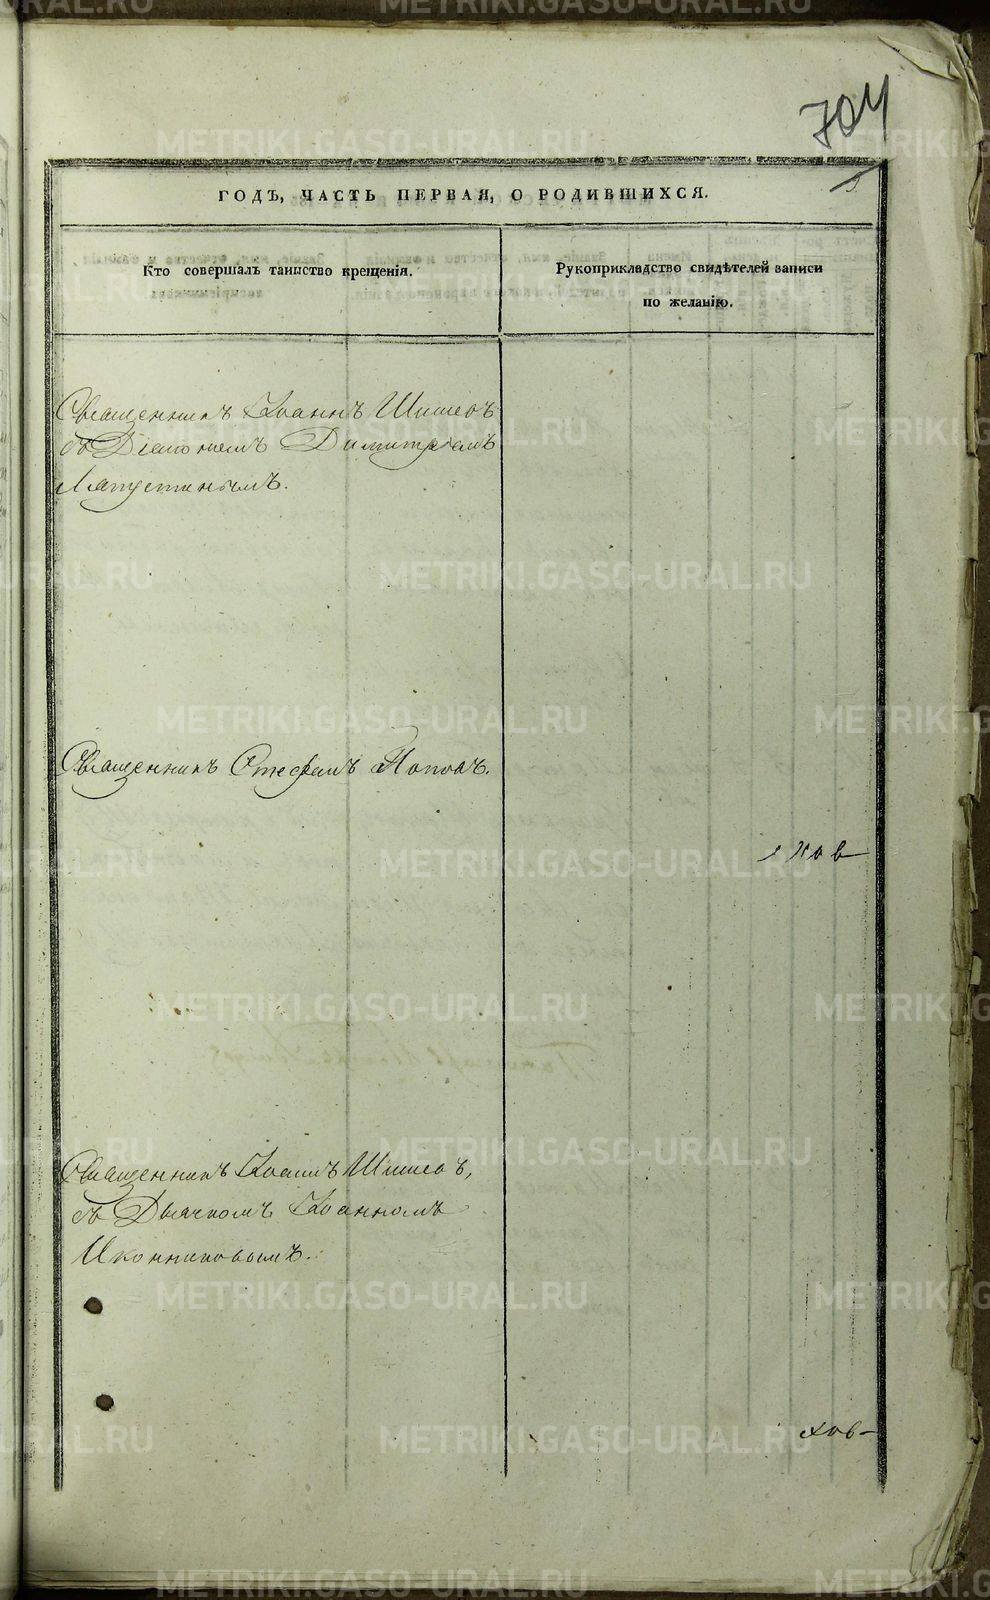 704
ГОДЪ, ЧАСТЬ ПЕРВАЯ, О РОДИВШИХСЯ.
Кто совершалъ таинство крещенія.
Рукоприкладство свидѣтелей записи
по желанію.
Священникъ Іоаннъ Шишевъ
съ Діакономъ Димитріемъ
Лапустинымъ.
Священникъ Стефанъ Поповъ.
Священникъ Іоаннъ Шишевъ,
съ Дьячкомъ Іоанномъ
Иконниковымъ.
METRIKI.GASO-URAL.RU